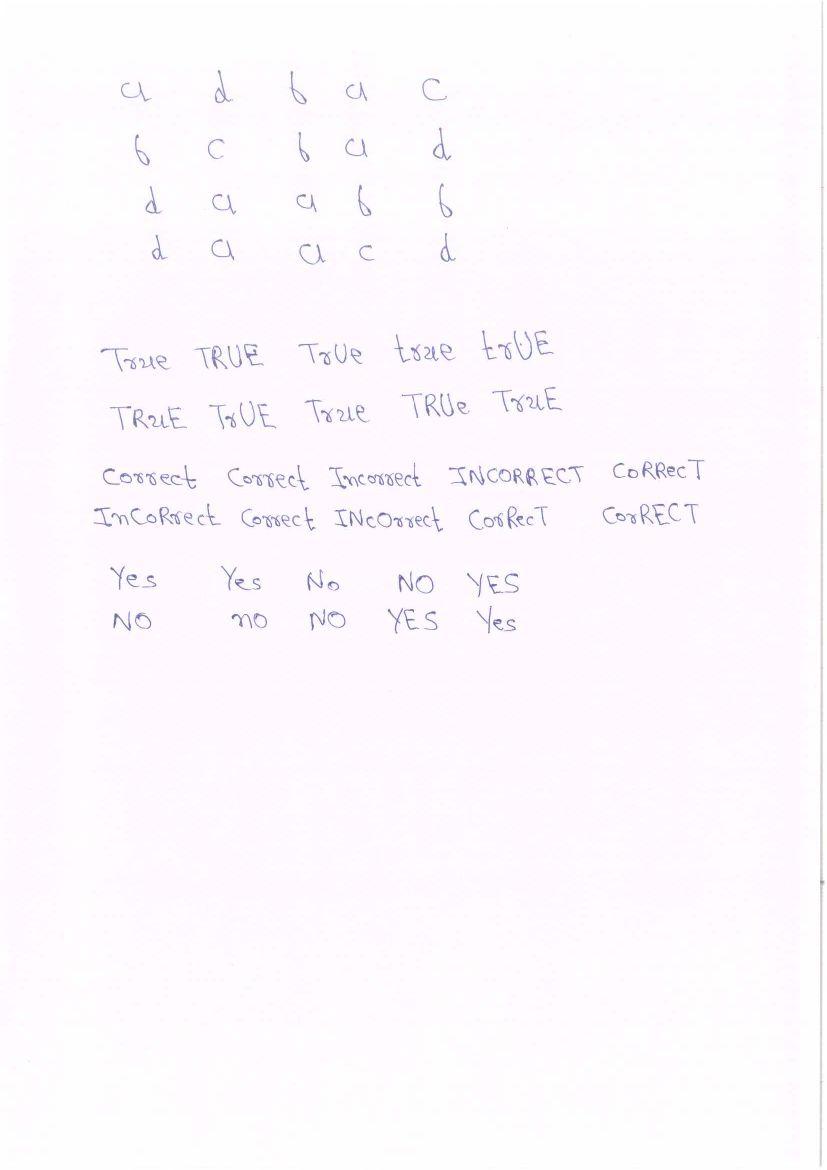 a d b a c
b c b a d
d a a b b
d a a c d
True TRUE TrUe true trUE
TRuE TrUE True TRUe TruE
Correct Correct Incorrect INCORRECT CoRRecT
InCoRrect Correct INcOrrect CorRecT CorRECT
Yes Yes No NO YES
NO no NO YES Yes